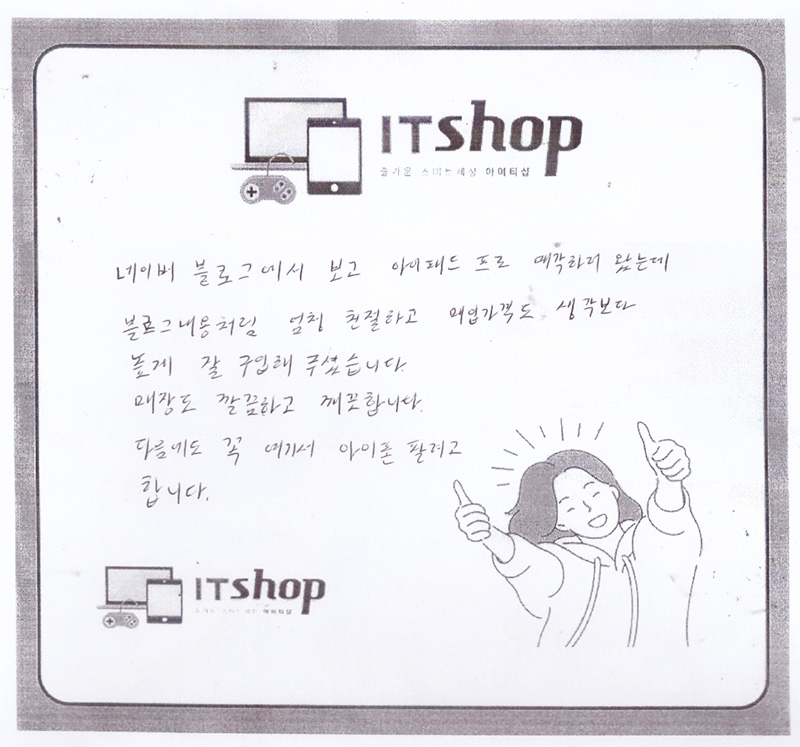 ITshop
즐거운 스마트세상 아이티샵
네이버 블로그에서 보고 아이패드 프로 매각하러 왔는데
블로그내용처럼 엄청 친절하고 매입가격도 생각보다
높게 잘 구입해 주셨습니다.
매장도 깔끔하고 깨끗합니다.
다음에도 꼭 여기서 아이폰 팔려고
합니다.
ITshop
아이티샵